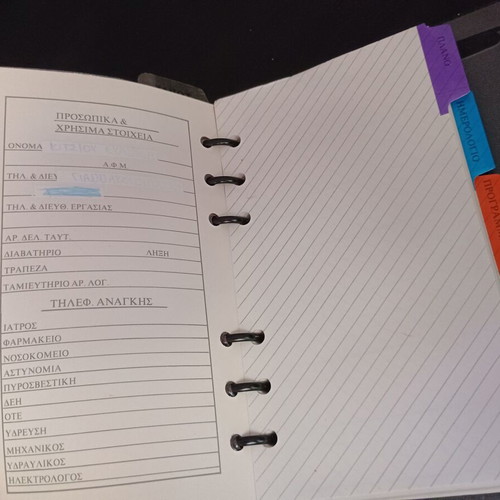 ΠΡΟΣΩΠΙΚΑ &
ΧΡΗΣΙΜΑ ΣΤΟΙΧΕΙΑ
ΟΝΟΜΑ
Α.Φ.Μ
ΤΗΛ. & ΔΙΕΥ
ΤΗΛ. & ΔΙΕΥΘ. ΕΡΓΑΣΙΑΣ
ΑΡ. ΔΕΛ. ΤΑΥΤ.
ΔΙΑΒΑΤΗΡΙΟ ΛΗΞΗ
ΤΡΑΠΕΖΑ
ΤΑΜΙΕΥΤΗΡΙΟ ΑΡ. ΛΟΓ.
ΤΗΛΕΦ. ΑΝΑΓΚΗΣ
ΙΑΤΡΟΣ
ΦΑΡΜΑΚΕΙΟ
ΝΟΣΟΚΟΜΕΙΟ
ΑΣΤΥΝΟΜΙΑ
ΠΥΡΟΣΒΕΣΤΙΚΗ
ΔΕΗ
ΟΤΕ
ΥΔΡΕΥΣΗ
ΜΗΧΑΝΙΚΟΣ
ΥΔΡΑΥΛΙΚΟΣ
ΗΛΕΚΤΡΟΛΟΓΟΣ
ΠΛΑΝΟ
ΗΜΕΡΟΛΟΓΙΟ